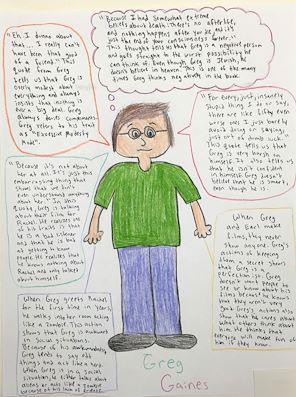 "Eh. I dunno about
that... I really can't
have been that good
of a friend." This
quote from Greg
tells us that Greg is
overly modest about
everything and always
insists that nothing is
ever a big deal. Greg
always denies compliments.
Greg refers to his trait
as "Excessive Modesty
Mode".
"Because I had somewhat extreme
beliefs about death: There's no afterlife,
and nothing happens after you die and it's
just the end of your consciousness forever."
This thought tells us that Greg is a negative person
and gets straight to the worst possibility he
can think of. Even though Greg is Jewish, he
doesn't believe in heaven. This is one of the many
times Greg thinks negatively in the book.
"For every, just, insanely
stupid thing I do or say,
there are like fifty even
worse ones I just barely
avoid doing or saying,
just out of dumb luck."
This quote tells us that
Greg is very harsh on
himself. It also tells us
that he isn't confident
in himself. Greg doesn't
believe that he is smart,
even though he is.
"Because it's not about
her at all. It's just this
embarrassing thing that
shows that we don't
even understand anything
about her." In this
quote, Greg is talking
about their film for
Rachel. He realizes one
of his traits is that
he is a bad listener
and that he is bad
at getting to know
people. He realizes that
he knows nothing about
Rachel and only talked
about himself.
When Greg
and Earl make
films, they never
show anyone. Greg's
actions of keeping
them a secret shows
that Greg is a
perfectionist. Greg
doesn't want people to
see or know about his
films because he knows
that they aren't very
good. Greg's actions also
show that he cares about
what others think about
him. He thinks that
everyone will make fun of
him if they knew.
When Greg greets Rachel
for the first time in years,
he walks into her room acting
like a zombie. This action
shows that Greg is awkward
in social situations.
Because of his awkwardness,
Greg tends to say odd
things and act like a nerd.
When Greg is in a social
situation, he either talks about
aliens or acts like a zombie
because of his lack of
Greg
Gaines